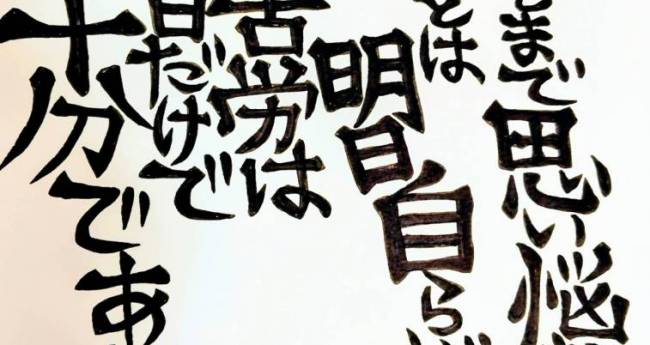 まで思い悩
とは
明日自ら
苦労は
日だけで
十分であ